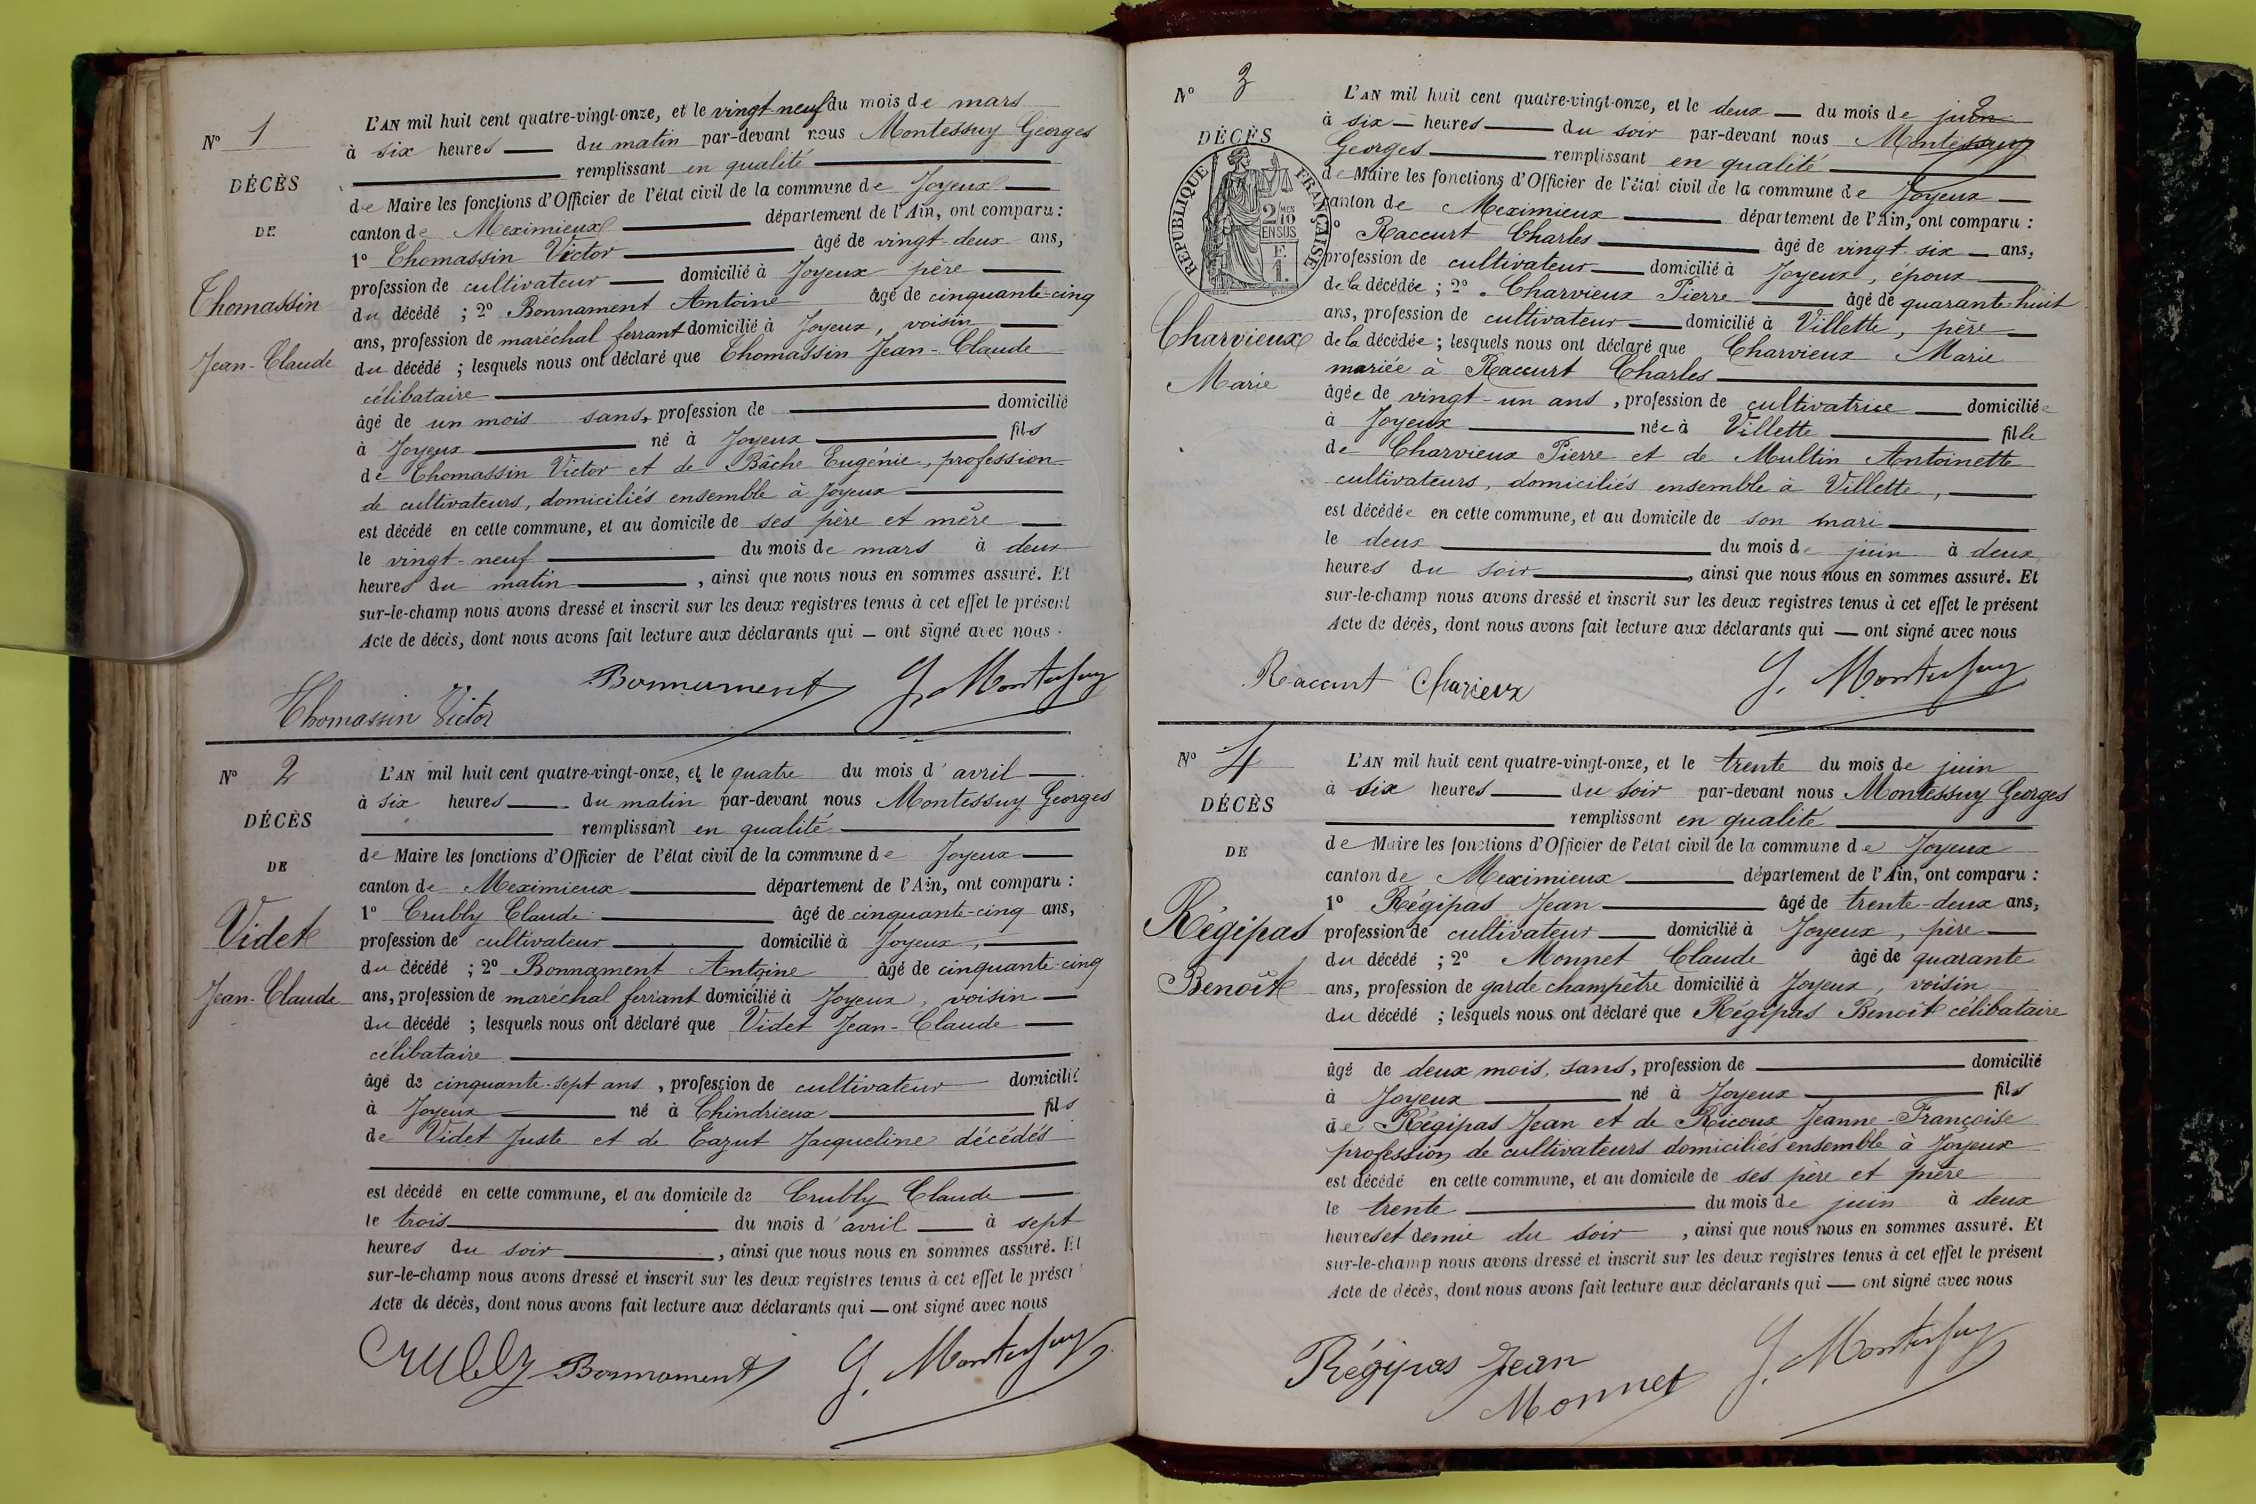 N° 1
DÉCÈS
DE
Thomassin
Jean-Claude
L'AN mil huit cent quatre-vingt-onze, et le vingt-neuf du mois de mars
à six heures du matin par-devant nous Montessuy Georges
remplissant en qualité
de Maire les fonctions d'Officier de l'état civil de la commune de Joyeux
canton de Meximieux département de l'Ain, ont comparu :
1° Thomassin Victor âgé de vingt-deux ans,
profession de cultivateur domicilié à Joyeux père
du décédé ; 2° Bonnament Antoine âgé de cinquante-cinq
ans, profession de maréchal ferrant domicilié à Joyeux, voisin
du décédé ; lesquels nous ont déclaré que Thomassin Jean-Claude
célibataire
âgé de un mois sans, profession de domicilié
à Joyeux né à Joyeux fils
de Thomassin Victor et de Bâche Eugénie, profession
de cultivateurs, domiciliés ensemble à Joyeux
est décédé en cette commune, et au domicile de ses père et mère
le vingt-neuf du mois de mars à deux
heures du matin, ainsi que nous nous en sommes assuré. Et
sur-le-champ nous avons dressé et inscrit sur les deux registres tenus à cet effet le présent
Acte de décès, dont nous avons fait lecture aux déclarants qui — ont signé avec nous.
Bonnament G. Montessuy
Thomassin Victor
N° 2
DÉCÈS
DE
Videt
Jean-Claude
L'AN mil huit cent quatre-vingt-onze, et le quatre du mois d'avril
à six heures du matin par-devant nous Montessuy Georges
remplissant en qualité
de Maire les fonctions d'Officier de l'état civil de la commune de Joyeux
canton de Meximieux département de l'Ain, ont comparu :
1° Crubly Claude âgé de cinquante-cinq ans,
profession de cultivateur domicilié à Joyeux,
du décédé ; 2° Bonnament Antoine âgé de cinquante-cinq
ans, profession de maréchal ferrant domicilié à Joyeux, voisin
du décédé ; lesquels nous ont déclaré que Videt Jean-Claude
célibataire
âgé de cinquante-sept ans, profession de cultivateur domicilié
à Joyeux né à Chindrieux fils
de Videt Juste et de Cazut Jacqueline décédés
est décédé en cette commune, et au domicile de Crubly Claude
le trois du mois d'avril à sept
heures du soir, ainsi que nous nous en sommes assuré. Et
sur-le-champ nous avons dressé et inscrit sur les deux registres tenus à cet effet le présent
Acte de décès, dont nous avons fait lecture aux déclarants qui — ont signé avec nous
Crubly Bonnament G. Montessuy
N° 3
DÉCÈS
RÉPUBLIQUE FRANÇAISE
2/10 EN SUS
F. 1.
Charvieux
Marie
L'AN mil huit cent quatre-vingt-onze, et le deux du mois de juin
à six heures du soir par-devant nous Montessuy
Georges remplissant en qualité
de Maire les fonctions d'Officier de l'état civil de la commune de Joyeux
canton de Meximieux département de l'Ain, ont comparu :
1° Raccurt Charles âgé de vingt-six ans,
profession de cultivateur domicilié à Joyeux, époux
de la décédée ; 2° Charvieux Pierre âgé de quarante-huit
ans, profession de cultivateur domicilié à Villette, père
de la décédée ; lesquels nous ont déclaré que Charvieux Marie
mariée à Raccurt Charles
âgée de vingt-un ans, profession de cultivatrice domiciliée
à Joyeux née à Villette fille
de Charvieux Pierre et de Multin Antoinette
cultivateurs, domiciliés ensemble à Villette,
est décédée en cette commune, et au domicile de son mari
le deux du mois de juin à deux
heures du soir, ainsi que nous nous en sommes assuré. Et
sur-le-champ nous avons dressé et inscrit sur les deux registres tenus à cet effet le présent
Acte de décès, dont nous avons fait lecture aux déclarants qui — ont signé avec nous
Raccurt Charieux G. Montessuy
N° 4
DÉCÈS
DE
Régipas
Benoît
L'AN mil huit cent quatre-vingt-onze, et le trente du mois de juin
à six heures du soir par-devant nous Montessuy Georges
remplissant en qualité
de Maire les fonctions d'Officier de l'état civil de la commune de Joyeux
canton de Meximieux département de l'Ain, ont comparu :
1° Régipas Jean âgé de trente-deux ans,
profession de cultivateur domicilié à Joyeux, père
du décédé ; 2° Monnet Claude âgé de quarante
ans, profession de garde champêtre domicilié à Joyeux, voisin
du décédé ; lesquels nous ont déclaré que Régipas Benoît célibataire
âgé de deux mois, sans, profession de domicilié
à Joyeux né à Joyeux fils
de Régipas Jean et de Ricoux Jeanne-Françoise
profession de cultivateurs domiciliés ensemble à Joyeux
est décédé en cette commune, et au domicile de ses père et mère
le trente du mois de juin à deux
heures et demie du soir, ainsi que nous nous en sommes assuré. Et
sur-le-champ nous avons dressé et inscrit sur les deux registres tenus à cet effet le présent
Acte de décès, dont nous avons fait lecture aux déclarants qui — ont signé avec nous
Régipas Jean G. Montessuy
Monnet